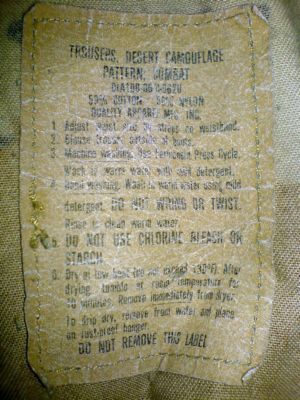 TROUSERS, DESERT CAMOUFLAGE
PATTERN, COMBAT
50% COTTON 50% NYLON
QUALITY APPAREL MFG. INC.
1. Adjust waist by straps on waistband.
2. Blouse trousers outside of boots.
3. Machine washing. Use Permanent Press Cycle.
Wash in warm water with mild detergent.
4. Hand washing. Wash in warm water using mild
detergent. DO NOT WRING OR TWIST.
Rinse in clean warm water.
5. DO NOT USE CHLORINE BLEACH OR
STARCH.
6. Dry at low heat (do not exceed 130°F). After
drying, tumble at room temperature for
10 minutes. Remove immediately from dryer.
To drip dry, remove from water and place
on rust-proof hanger.
DO NOT REMOVE THIS LABEL